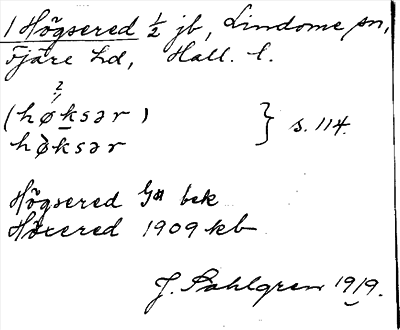 1 Högsered ½ jb, Lindome sn,
Fjäre hd, Hall. l.
(høksər) } s. 114.
høksər
Högsered bek
Höxered 1909 kb
J. Sahlgren 1919.